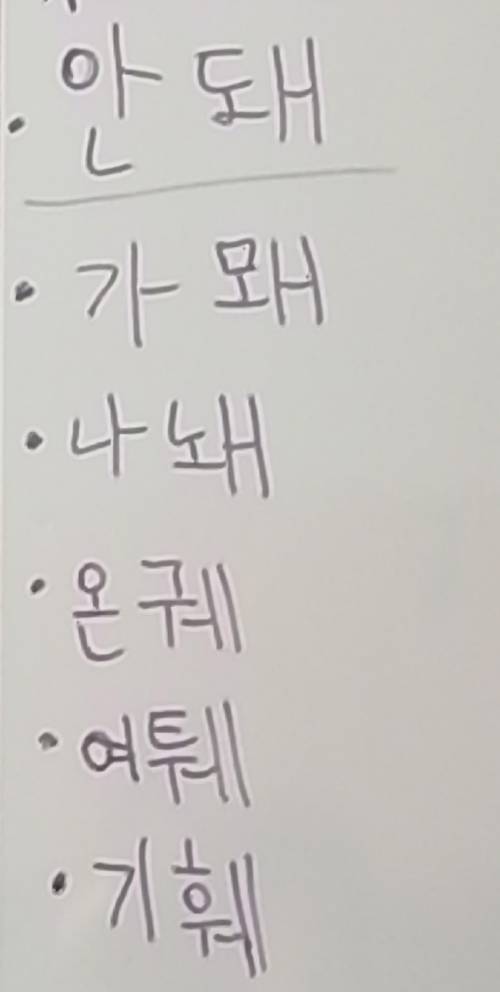 · 안 돼
· 가 뫠
· 나 놰
· 온 궤
· 여 퉤
· 기 훼